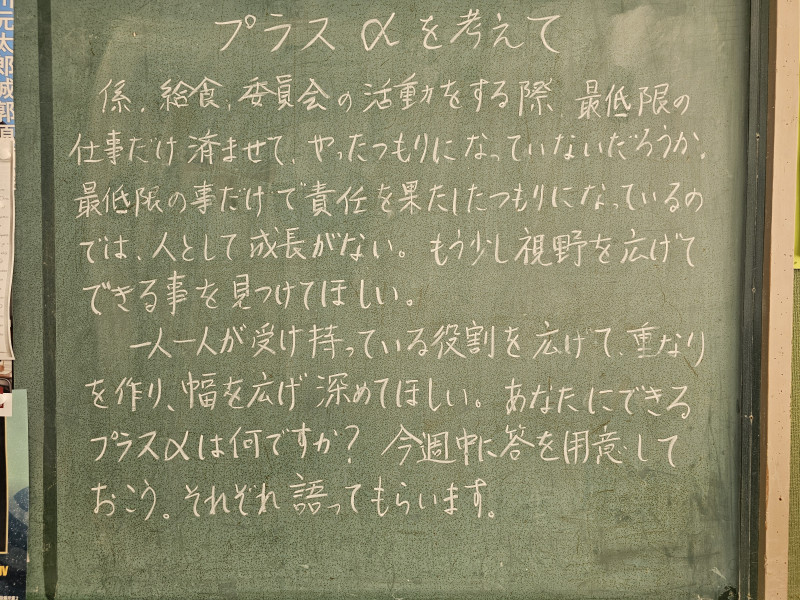 プラスαを考えて
係、給食、委員会の活動をする際、最低限の
仕事だけ済ませて、やったつもりになっていないだろうか。
最低限の事だけで責任を果たしたつもりになっているの
では、人として成長がない。もう少し視野を広げて
できる事を見つけてほしい。
一人一人が受け持っている役割を広げて、重なり
を作り、幅を広げ深めてほしい。あなたにできる
プラスαは何ですか？今週中に答を用意して
おこう。それぞれ語ってもらいます。
元太郎
城郭